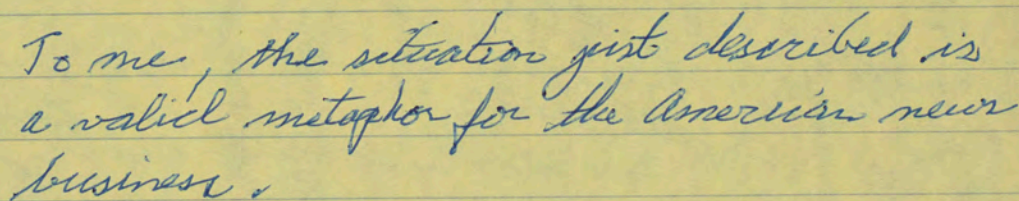 To me, the situation just described is
a valid metaphor for the American news
business.